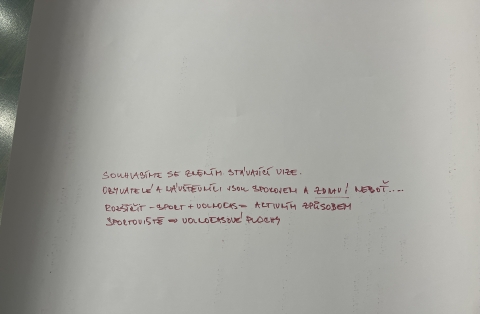 SOUHLASÍME SE ZNĚNÍM STÁVAJÍCÍ VIZE.
OBYVATELÉ A NÁVŠTĚVNÍCI JSOU SPOKOJENI A ZDRAVÍ NEBOŤ....
ROZŠÍŘIT - SPORT + VOLNOČAS - AKTIVNÍM ZPŮSOBEM
SPORTOVIŠTĚ VOLNOČASOVÉ PLOCHY